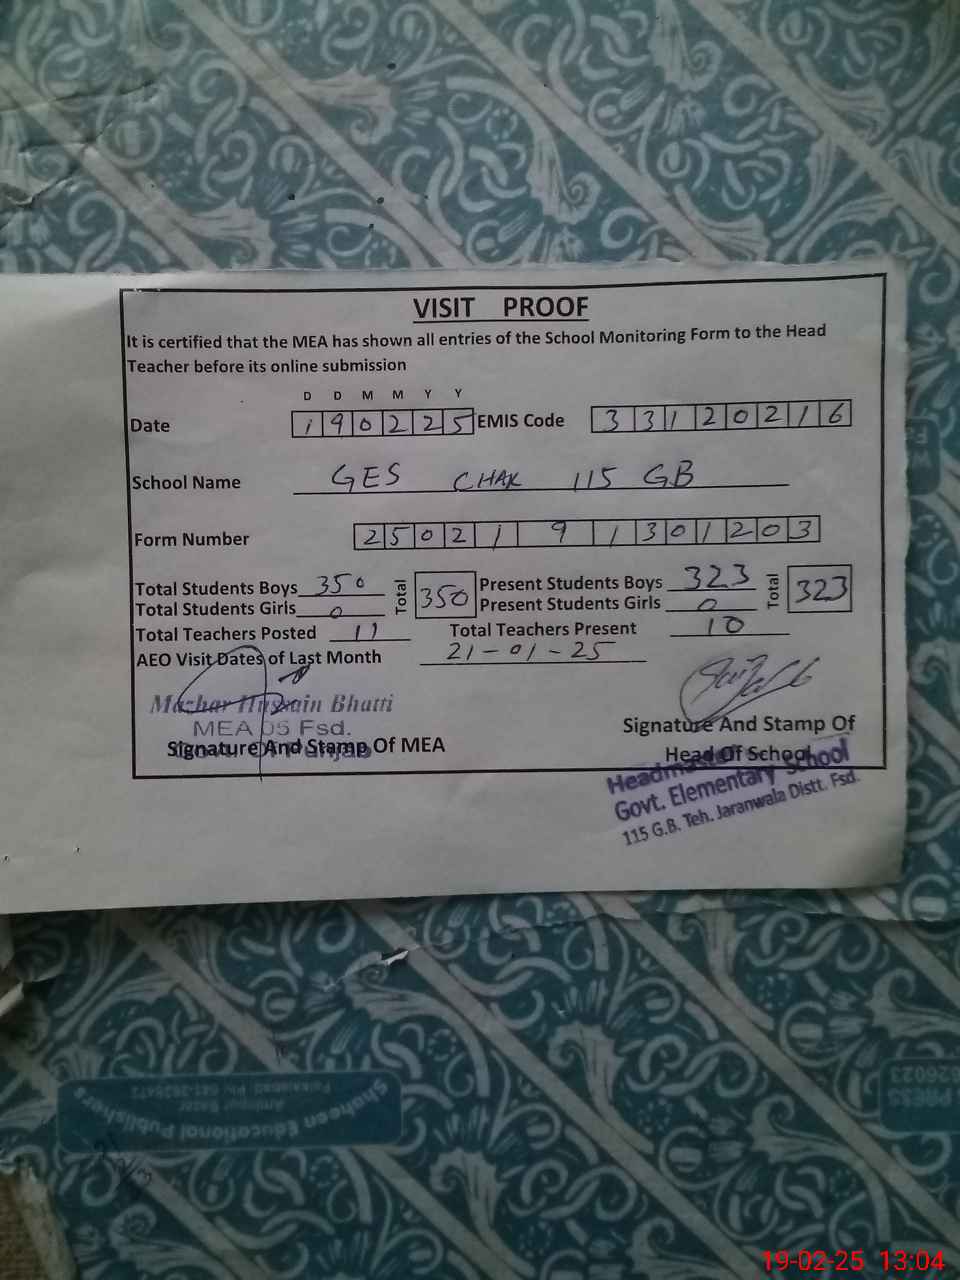 VISIT PROOF
It is certified that the MEA has shown all entries of the School Monitoring Form to the Head
Teacher before its online submission
D D M M Y Y
Date 190225 EMIS Code 33120216
School Name GES CHAK 115 GB
Form Number 2502191301203
Total Students Boys 350 Total 350 Present Students Boys 323 Total 323
Total Students Girls 0 Present Students Girls 0
Total Teachers Posted 11 Total Teachers Present 10
AEO Visit Dates of Last Month 21-01-25
Mazhar Hussain Bhatti
MEA 05 Fsd.
Govt. of Punjab
Signature And Stamp Of MEA
Signature And Stamp Of
Head Of School
Headmaster
Govt. Elementary School
115 G.B. Teh. Jaranwala Distt. Fsd.
Shaheen Educational Publishers
Aminpur Bazar
Faisalabad.
626023
PRESS
19-02-25 13:04